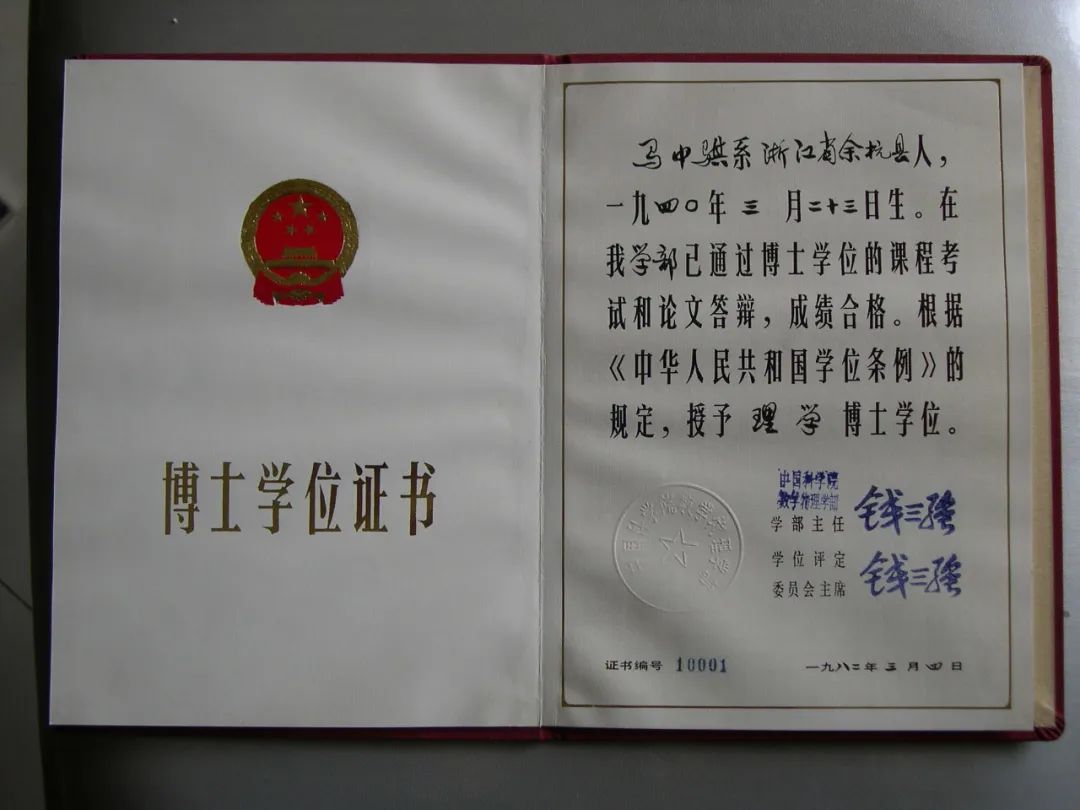 博士学位证书
马中骐系浙江省余杭县人，
一九四〇年三月二十三日生。在
我学部已通过博士学位的课程考
试和论文答辩，成绩合格。根据
《中华人民共和国学位条例》的
规定，授予理学博士学位。
中国科学院
数学物理学部
学部主任 钱三强
学位评定
委员会主席 钱三强
证书编号 10001 一九八二年三月四日